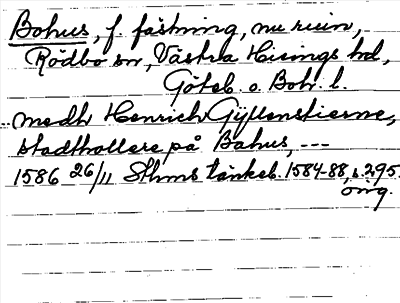 Bohus, f. fästning, nu ruin,
Rödbo sn, Västra Hisings hd,
Göteb. o. Boh. l.
.. medh Henrich Gyllenstierne,
stadthollere på Bahus, ---
1586 26/11 Sthms tänkeb. 1584-88, s. 295.
orig.